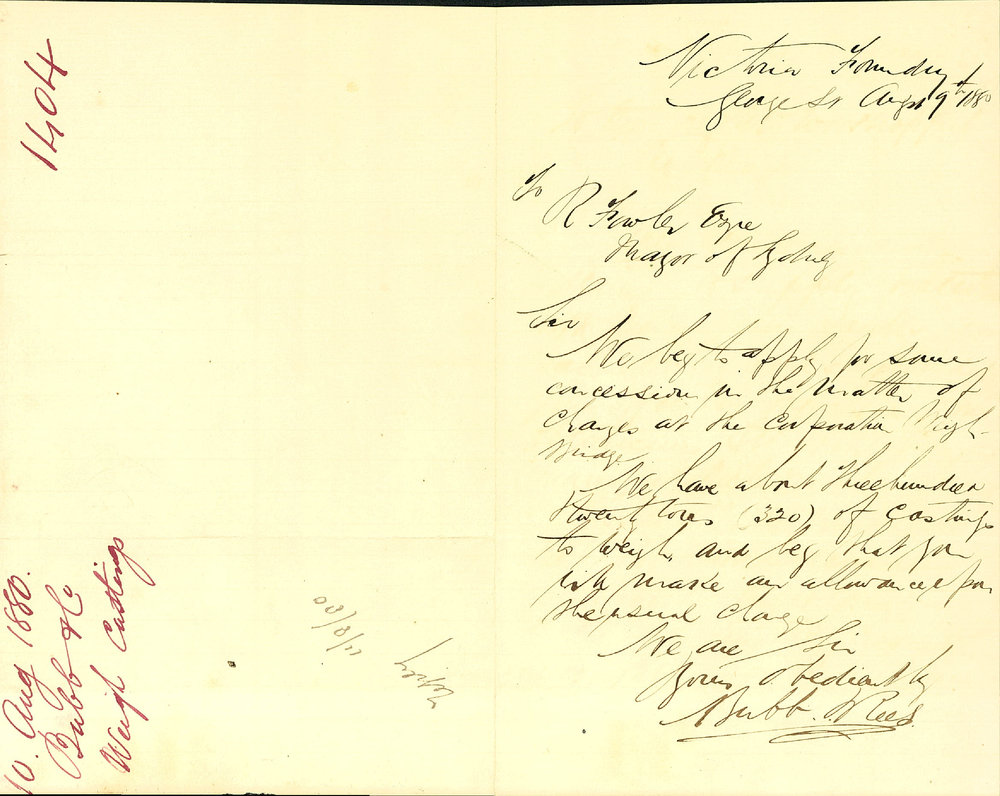 1404
10. Aug 1880.
Bubb & Co
Weigh Castings
11/8/80
Victoria Foundry
George St Augst 9th 1880
To
R Fowler Esqre
Mayor of Sydney
Sir
We beg to apply for some
concession in the matter of
charges at the Corporation Weigh
bridge
We have about three hundred
& twenty tons (320) of castings
to weigh, and beg that you
will make an allowance from
the usual charge
We are Sir
Yours obediently
Bubb & Rees